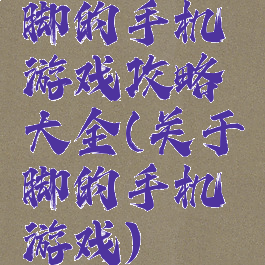 脚的手机
游戏攻略
大全(关于
脚的手机
游戏)